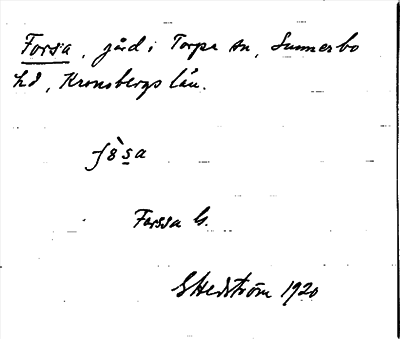 Forsa, gård i Torpa sn, Sunnerbo
hd, Kronobergs län.
Forssa G.
G Hedström 1920